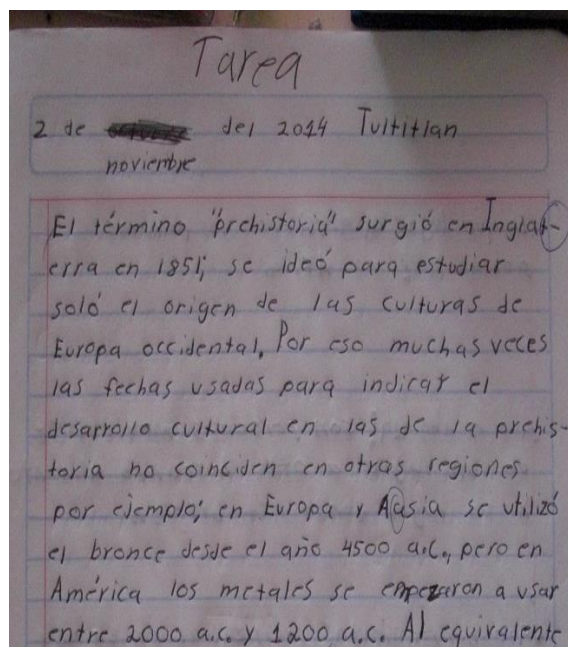 Tarea
2 de del 2014 Tultitlan
noviembre
El término "prehistoria" surgió en Inglat-
erra en 1851; se ideó para estudiar
soló el origen de las culturas de
Europa occidental, Por eso muchas veces
las fechas usadas para indicar el
desarrollo cultural en las de la prehis-
toria no coinciden en otras regiones
por ejemplo; en Europa y Aasia se utilizó
el bronce desde el año 4500 a.C., pero en
América los metales se empezaron a usar
entre 2000 a.c. y 1200 a.c. Al equivalente